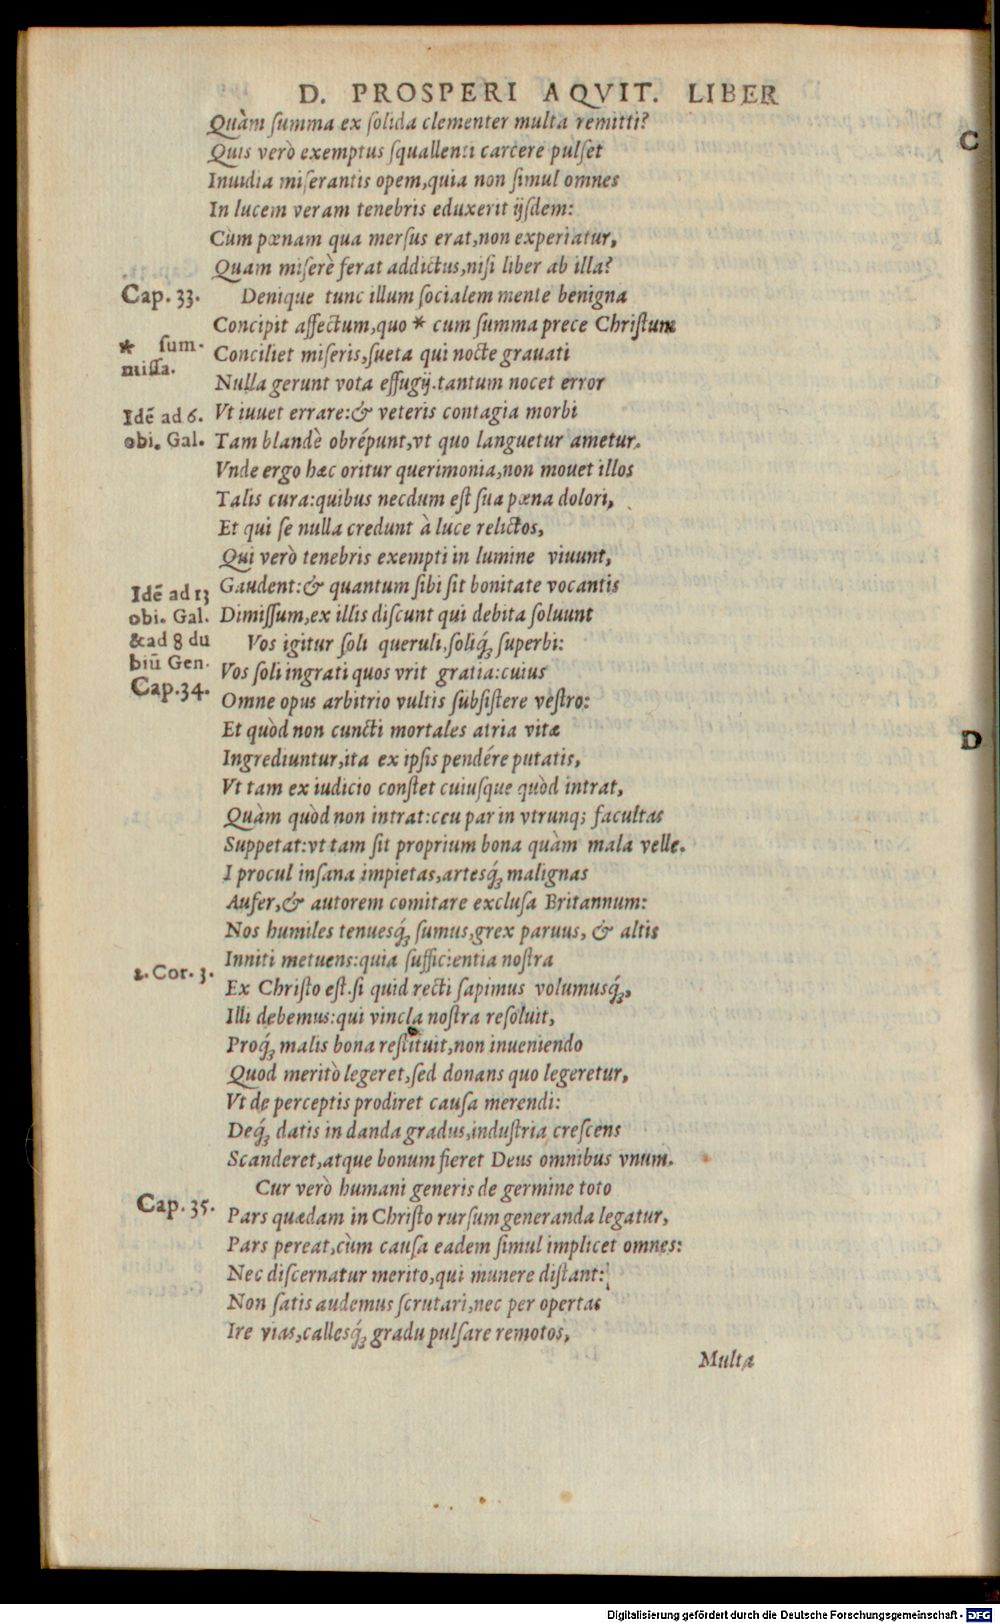 D. PROSPERI AQVIT. LIBER
Quàm ſumma ex ſolida clementer multa remitti?
Quis verò exemptus ſquallenti carcere pulſet
C
Inuidia miſerantis opem, quia non ſimul omnes
In lucem veram tenebris eduxerit ijſdem:
Cùm pœnam qua merſus erat, non experiatur,
Quam miſerè ferat addictus, niſi liber ab illa?
Cap. 33. Denique tunc illum ſocialem mente benigna
Concipit affectum, quo * cum ſumma prece Chriſtum
* ſum-
miſſa.
Conciliet miſeris, ſueta qui nocte grauati
Nulla gerunt vota effugij. tantum nocet error
Idē ad 6.
obi. Gal.
Vt iuuet errare: & veteris contagia morbi
Tam blandè obrépunt, vt quo languetur ametur.
Vnde ergo hæc oritur querimonia, non mouet illos
Talis cura: quibus necdum eſt ſua pœna dolori,
Et qui ſe nulla credunt à luce relictos,
Qui verò tenebris exempti in lumine viuunt,
Idē ad 13
obi. Gal.
& ad 8 du
biū Gen.
Gaudent: & quantum ſibi ſit bonitate vocantis
Dimiſſum, ex illis diſcunt qui debita ſoluunt
Vos igitur ſoli queruli, ſoliq́; ſuperbi:
Cap. 34.
Vos ſoli ingrati quos vrit gratia: cuius
Omne opus arbitrio vultis ſubſiſtere veſtro:
Et quòd non cuncti mortales atria vitæ
D
Ingrediuntur, ita ex ipſis pendére putatis,
Vt tam ex iudicio conſtet cuiuſque quòd intrat,
Quàm quòd non intrat: ceu par in vtrunq; facultas
Suppetat: vt tam ſit proprium bona quàm mala velle.
I procul inſana impietas, artesq́; malignas
Aufer, & autorem comitare excluſa Britannum:
Nos humiles tenuesq́; ſumus, grex paruus, & altis
Inniti metuens: quia ſufficientia noſtra
2. Cor. 3.
Ex Chriſto eſt. ſi quid recti ſapimus volumusq́;,
Illi debemus: qui vincla noſtra reſoluit,
Proq́; malis bona reſtituit, non inueniendo
Quod meritò legeret, ſed donans quo legeretur,
Vt de perceptis prodiret cauſa merendi:
Deq́; datis in danda gradus, induſtria creſcens
Scanderet, atque bonum fieret Deus omnibus vnum.
Cur verò humani generis de germine toto
Cap. 35.
Pars quædam in Chriſto rurſum generanda legatur,
Pars pereat, cùm cauſa eadem ſimul implicet omnes:
Nec diſcernatur merito, qui munere diſtant:
Non ſatis audemus ſcrutari, nec per opertas
Ire vias, callesq́; gradu pulſare remotos,
Multa
Digitalisierung gefördert durch die Deutsche Forschungsgemeinschaft - DFG